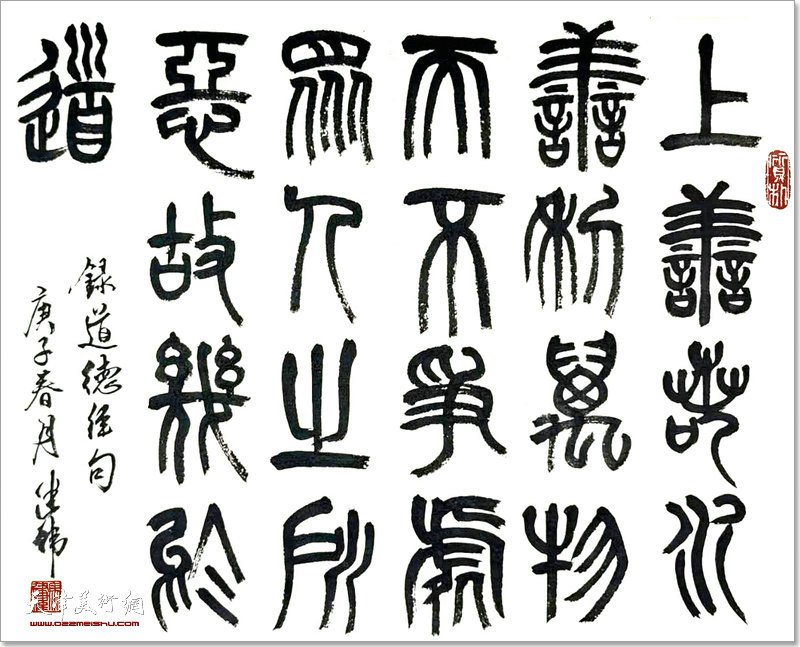 上善若水
善利萬物
而不爭處
眾人之所
惡故幾於
道
錄道德經句
庚子春月
天津美術網
www.022meishu.com